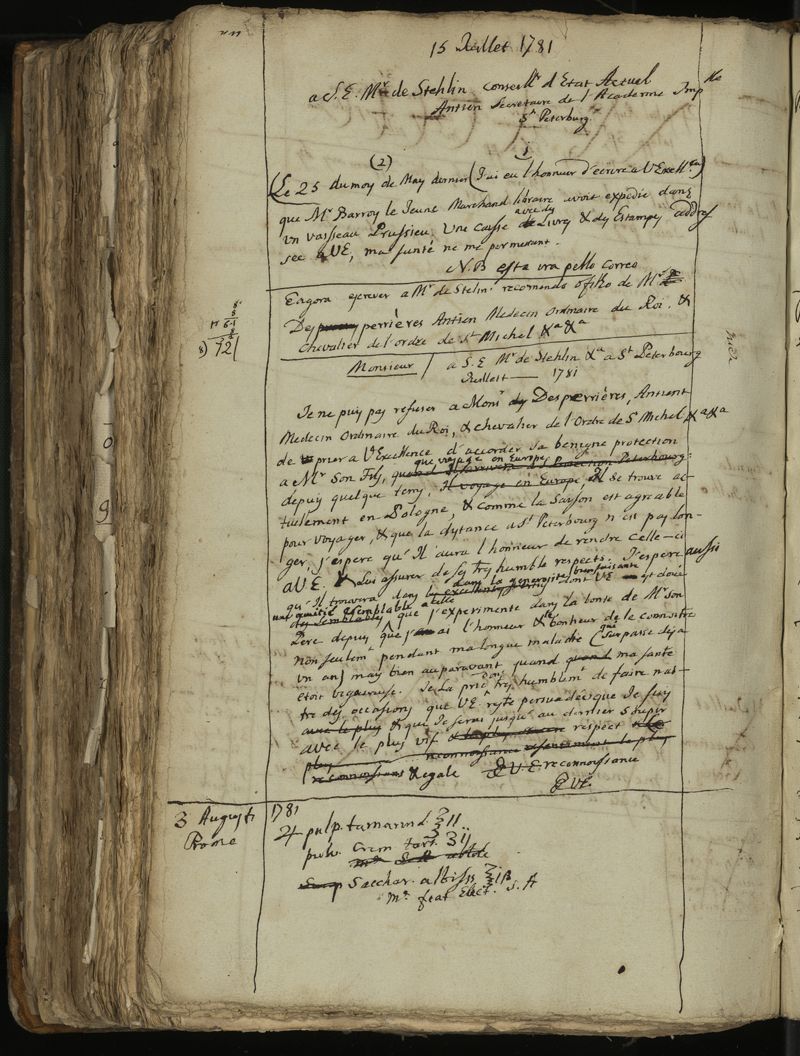 15 Juillet 1781
a S. E. Mr de Stehlin Conseillr d'Etat Actuel
Antien Secretaire de l'Academie Imple
St Peterburg
(2) 1
(Le 25 du moy de May dernier (J'ai eu l'honneur d'ecrire a V Exclle)
que Mr Barroy le Jeune Marchand libraire avoit expedié dans
un vaisseau Prussien, Une Caisse avec des Livres & des Estampes addres
sée a VE, ma santé ne me permetant.
N.B esta vra pello Correo
Eagora escrever a Mr de Stelin recomendo o filho de Mr
Desperrières Antien Medecin Ordinaire du Roi, &
Chevalier de l'ordre de St Michel &a &a
Monsieur / a S. E Mr de Stehlin &a a St Peterbourg
Juillet — 1781
Je ne puy pas refuser a Monsr Desperrières, Antient
Medecin Ordinaire du Roi, & chevalier de l'Ordre de St Michel &a &a
de prier a V Excellence d'accorder sa benigne protection
a Mr son Fils, que voyage en Europe
depuy quelque tems, il voyage en Europe, Il se trouve ac-
tuelement en Pologne, & comme la saison est agreable
pour voyager, & que la dystance a St Peterbourg n'est pas lon-
ger, j'espere qu'Il aura l'honneur de rendre celle-ci
a VE. & Les assurer de ses tres humble respects. J'espere aussi
qu'Il trouvera dans la generosite bienfaisante dont VE est doué
une amitié semblable a celle que j'experimente dans la bonté de Mr son
Pere depuy que j'ai l'honneur & le bonheur de le connoitre
non seulemt pendant ma longue maladie (que surpasse déja
un an) may bien auparavant quand ma santé
etoit vigoureuse. Je La prie donc tres humblemt de faire nai-
tre des occasions que VE reste persuadée que Je suy
& que Je serai jusqu'au dernier soupir
avec le plus vif respect
& egale a VE reconnoissance
a VE.
8) 721
3 Augusti 1781
Prome
♃ pulp. tamarind. ℥ii
pulv. Crem tart. ʒij
Sacchar. albiss ℥iβ
Mr. fiat Elect. S. A